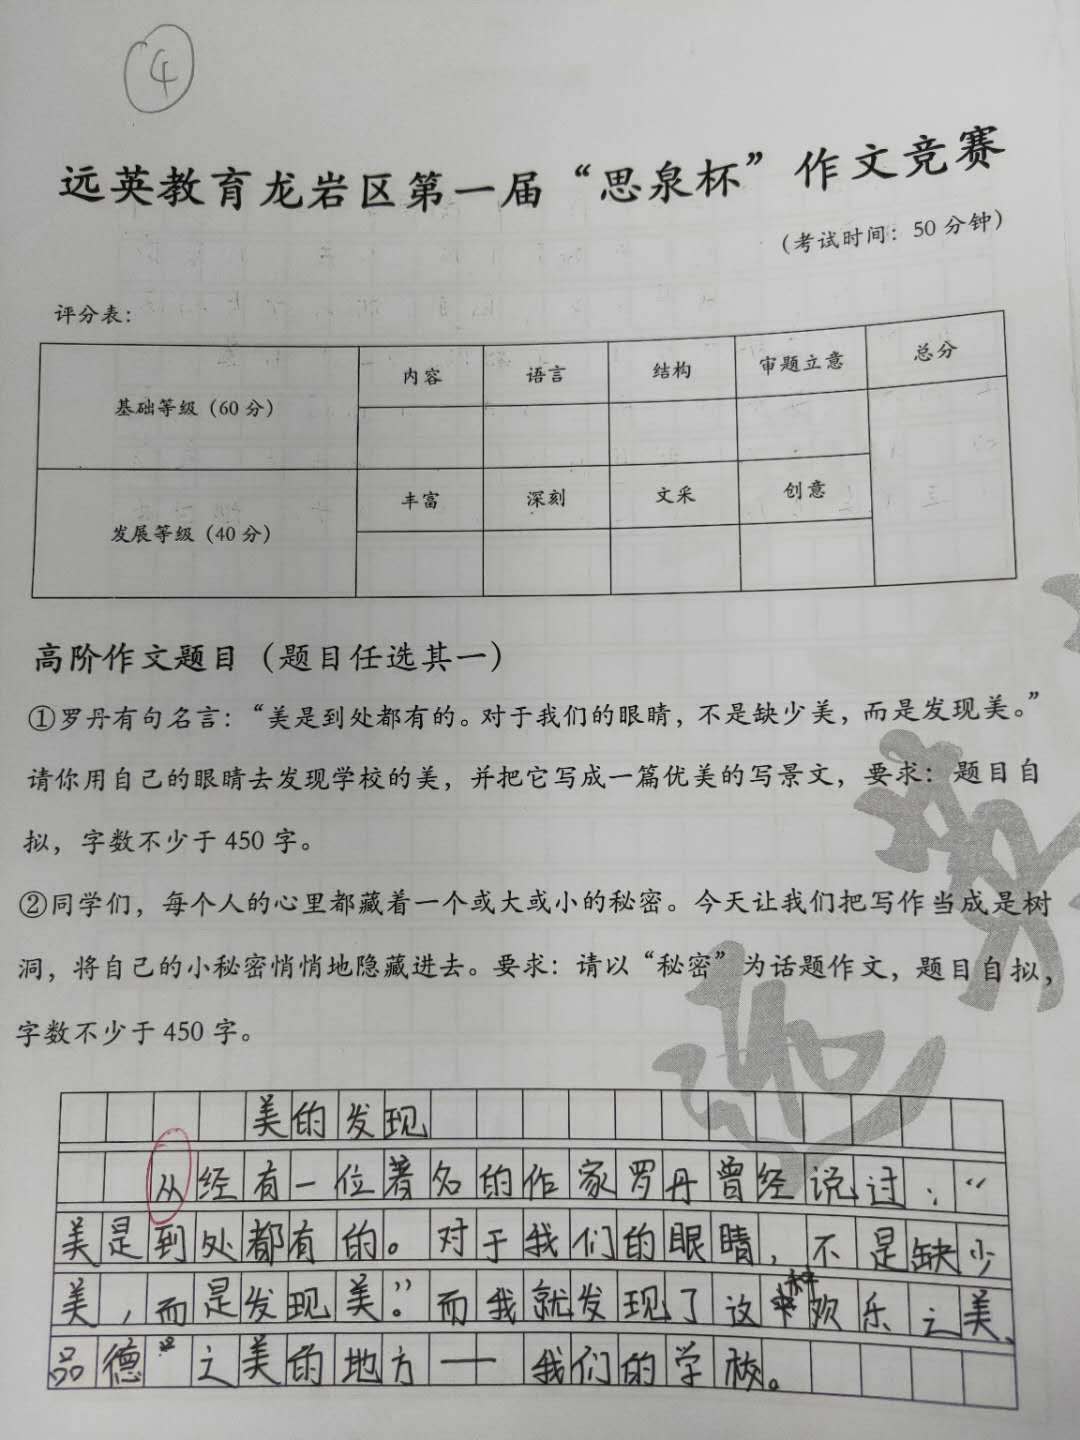 4
远英教育龙岩区第一届“思泉杯”作文竞赛
(考试时间：50分钟)
评分表：
基础等级（60分） 内容 语言 结构 审题立意 总分
发展等级（40分） 丰富 深刻 文采 创意
高阶作文题目（题目任选其一）
①罗丹有句名言：“美是到处都有的。对于我们的眼睛，不是缺少美，而是发现美。”
请你用自己的眼睛去发现学校的美，并把它写成一篇优美的写景文，要求：题目自
拟，字数不少于450字。
②同学们，每个人的心里都藏着一个或大或小的秘密。今天让我们把写作当成是树
洞，将自己的小秘密悄悄地隐藏进去。要求：请以“秘密”为话题作文，题目自拟，
字数不少于450字。
美的发现
从经有一位著名的作家罗丹曾经说过：“
美是到处都有的。对于我们的眼睛，不是缺少
美，而是发现美。”而我就发现了这种欢乐之美、
品德之美的地方——我们的学校。